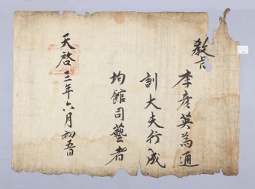 敎旨
李彦英為通
訓大夫行成
均館司藝者
天啓三年六月初吾日